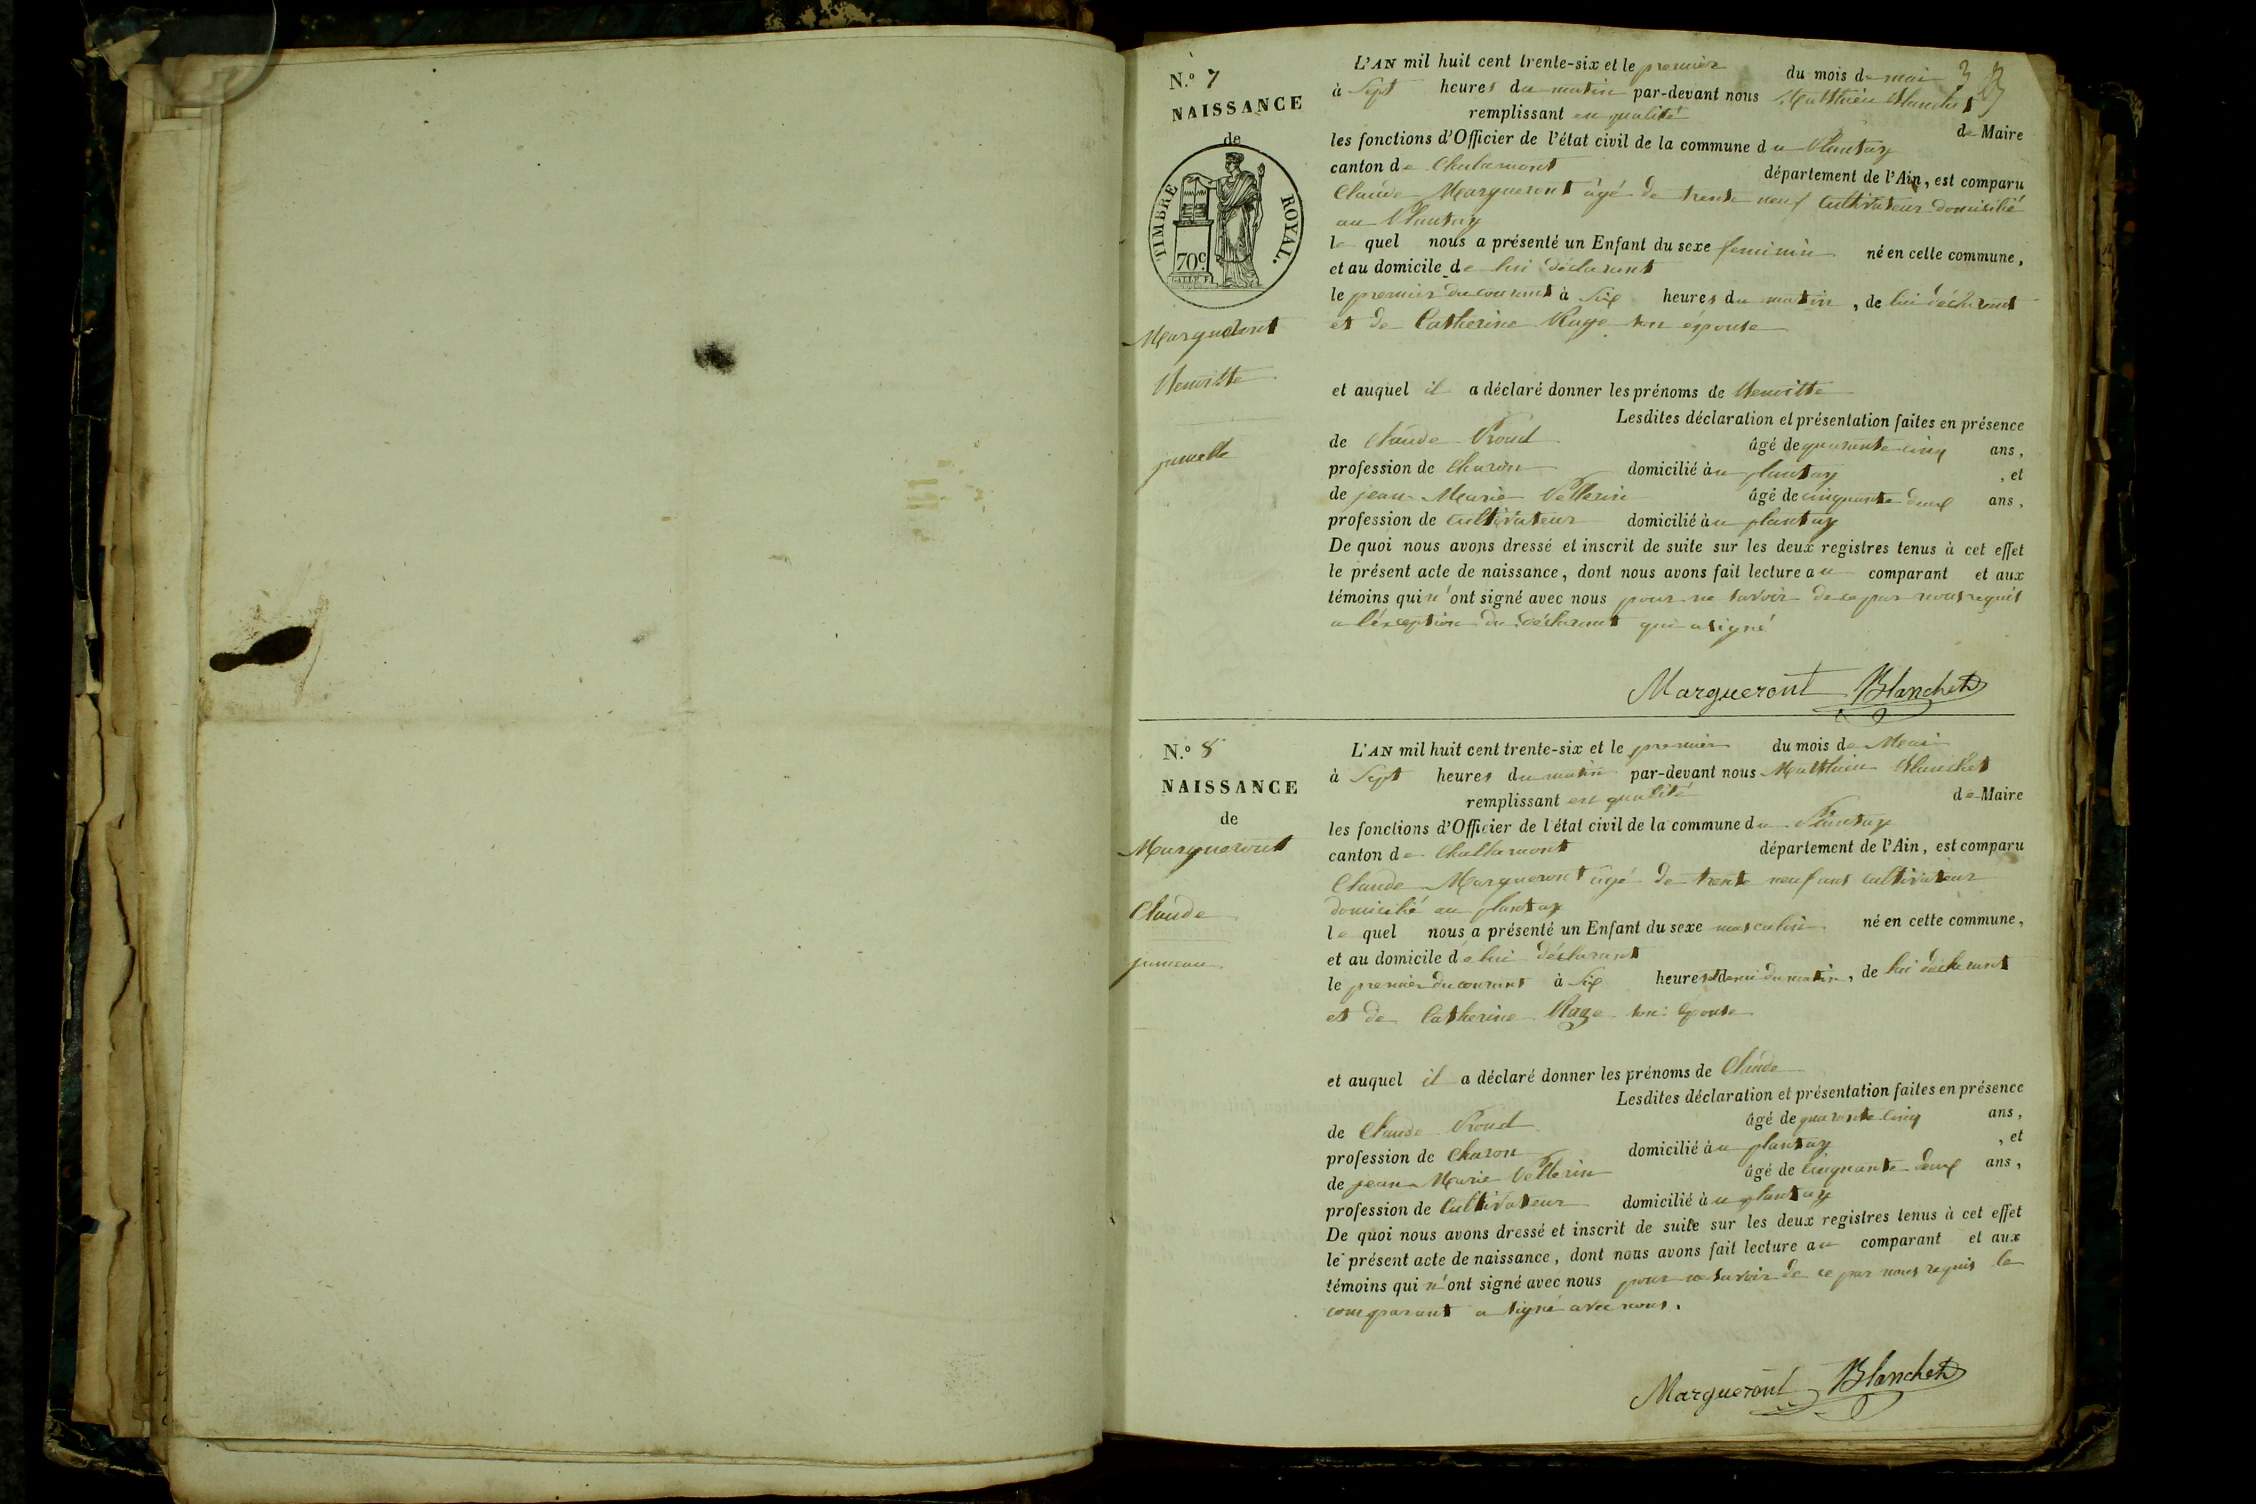 N.º 7
NAISSANCE
de
TIMBRE ROYAL.
70c.
Margueront
Benoitte
jumelle
L'AN mil huit cent trente-six et le premier du mois de mai 3
à Sept heures du matin par-devant nous Matthieu Blanchet
remplissant en qualité de Maire
les fonctions d'Officier de l'état civil de la commune du Plantay
canton de Chalamont département de l'Ain, est comparu
Claude Margueront âgé de trente neuf cultivateur domicilié
au Plantay
le quel nous a présenté un Enfant du sexe feminin né en cette commune,
et au domicile de lui déclarant
le premier du courant à Six heures du matin, de lui déclarant
et de Catherine Ruge son épouse
et auquel il a déclaré donner les prénoms de Benoitte
Lesdites déclaration et présentation faites en présence
de Claude Proud âgé de quarante cinq ans,
profession de Charon domicilié au plantay, et
de jean Marie Vellerin âgé de cinquante deux ans,
profession de cultivateur domicilié au plantay
De quoi nous avons dressé et inscrit de suite sur les deux registres tenus à cet effet
le présent acte de naissance, dont nous avons fait lecture au comparant et aux
témoins qui n'ont signé avec nous pour ne savoir de ce par nous requis
a l'exception du déclarant qui a signé
Margueront Blanchet
N.º 8
NAISSANCE
de
Margueront
Claude
jumeau
L'AN mil huit cent trente-six et le premier du mois de Mai
à Sept heures du matin par-devant nous Matthieu Blanchet
remplissant en qualité de Maire
les fonctions d'Officier de l'état civil de la commune du Plantay
canton de Challamont département de l'Ain, est comparu
Claude Margueront âgé de trente neuf ans cultivateur
domicilié au plantay
le quel nous a présenté un Enfant du sexe masculin né en cette commune,
et au domicile de lui déclarant
le premier du courant à Six heures et demi du matin, de lui déclarant
et de Catherine Ruge son épouse
et auquel il a déclaré donner les prénoms de Claude
Lesdites déclaration et présentation faites en présence
de Claude Proud âgé de quarante cinq ans,
profession de Charon domicilié au plantay, et
de jean Marie Vellerin âgé de Cinquante deux ans,
profession de Cultivateur domicilié au plantay
De quoi nous avons dressé et inscrit de suite sur les deux registres tenus à cet effet
le présent acte de naissance, dont nous avons fait lecture au comparant et aux
témoins qui n'ont signé avec nous pour ne savoir de ce par nous requis le
comparant a signé avec nous.
Margueront Blanchet